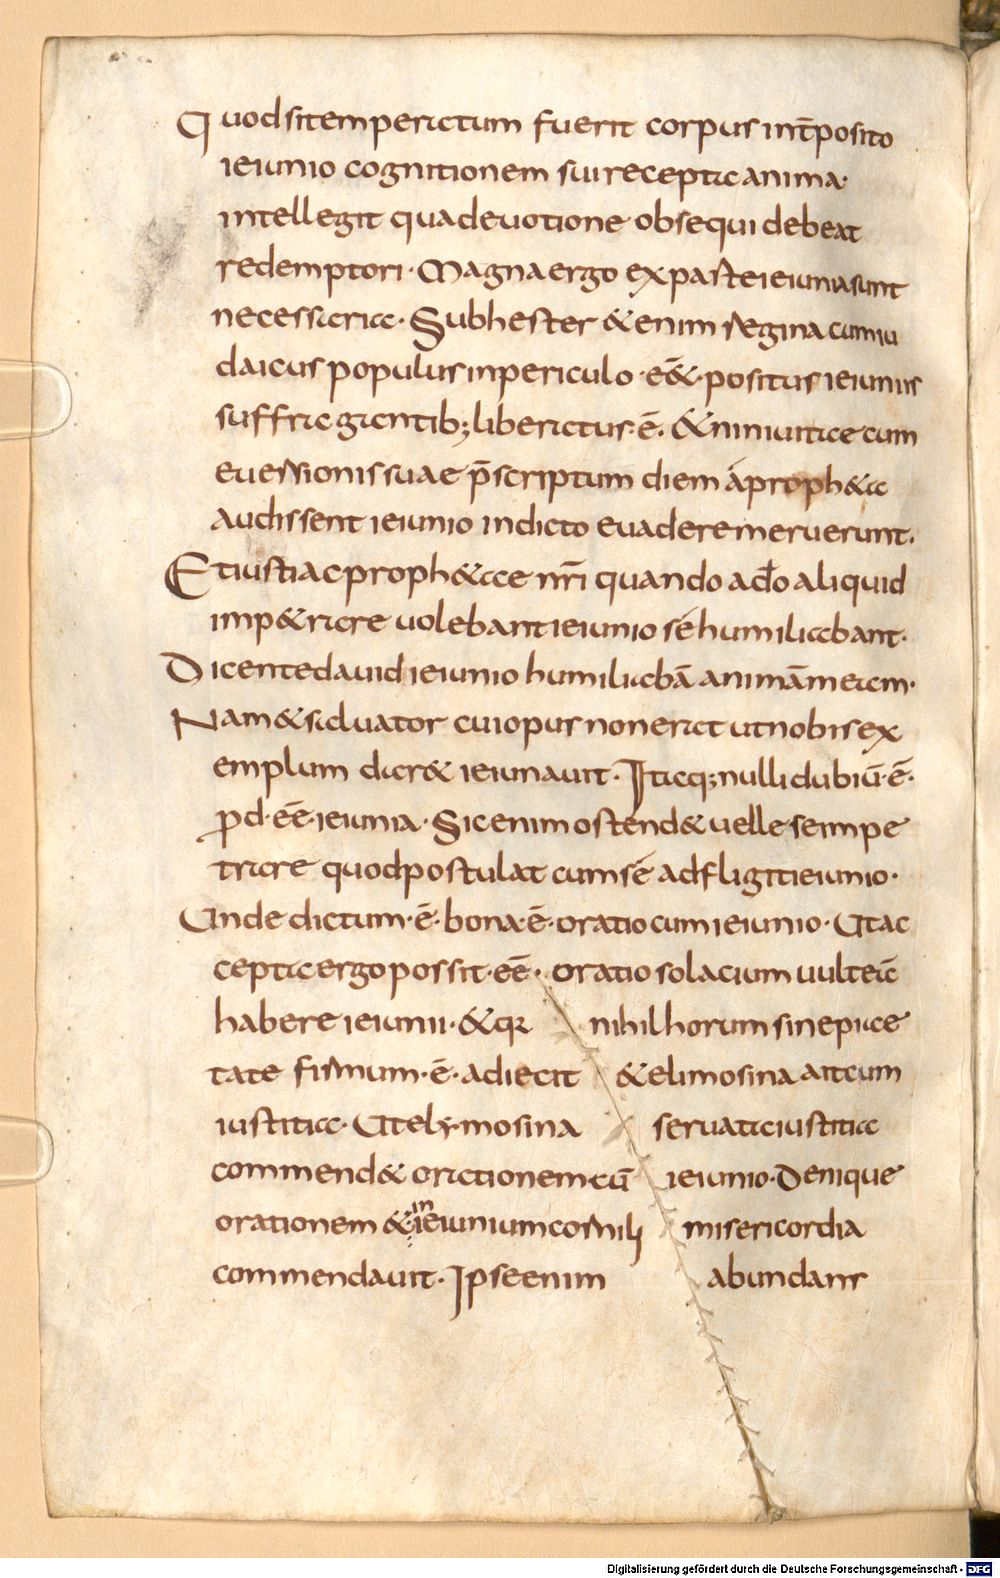 Quod si temperatum fuerit corpus int̄posito
ieiunio cognitionem sui recepta anima·
intellegit qua deuotione obsequi debeat
redemptori· Magna ergo ex parte ieiunia sunt
necessaria· Sub hester &enim regina cum iu
daicus populus in periculo ·eē&· positus ieiuniis
suffragantib; liberatus·ē· & niniuitae cum
euersionis suae p̄scriptum diem á proph&a
audissent ieiunio indicto euadere meruerunt·
Et iusti ac proph&ae nr̄i quando ad dō aliquid
imp&rare uolebant ieiunio sé humiliabant·
Dicente dauid ieiunio humiliabā animā meam·
Nam & saluator cui opus non erat ut nobis ex
emplum dar& ieiunauit· Itaq; nulli dubiū·ē·
ꝓd·eē·ieiunia· Sic enim ostend& uelle se impe
trare quod postulat cum sé adfligit ieiunio·
Unde dictum·ē· bona·ē· oratio cum ieiunio· Ut ac
cepta ergo possit·eē· oratio solacium uult eā
habere ieiunii· & qr nihil horum sine pi&ae
tate firmum·ē· adiecit & elimosina aut cum
iustitia· Ut elymosina seruata iustitia
commend& orationem cū ieiunio· Denique
orationem & in ieiunium cornili misericordia
commendauit· Ipse enim abundans
Digitalisierung gefördert durch die Deutsche Forschungsgemeinschaft - DFG